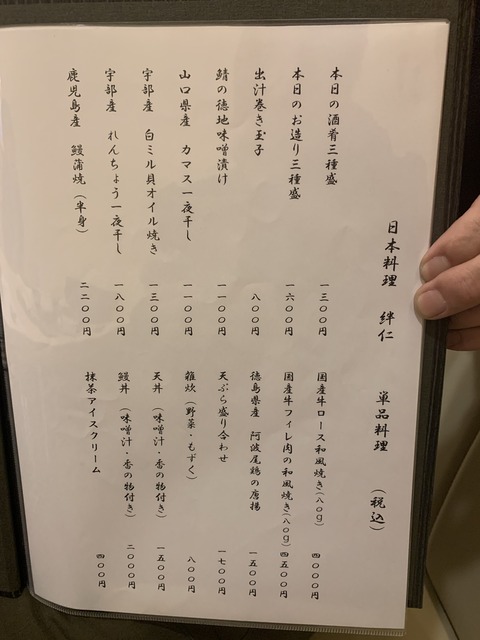 日本料理 絆仁 単品料理 (税込)
本日の酒肴三種盛 一三〇〇円
本日のお造り三種盛 一六〇〇円
出汁巻き玉子 八〇〇円
鯖の徳地味噌漬け 一一〇〇円
山口県産 カマス一夜干し 一一〇〇円
宇部産 白ミル貝オイル焼き 一三〇〇円
宇部産 れんちょう一夜干し 一八〇〇円
鹿児島産 鰻蒲焼(半身) 二二〇〇円
国産牛ロース和風焼き(八〇g) 四〇〇〇円
国産牛フィレ肉の和風焼き(八〇g) 四五〇〇円
徳島県産 阿波尾鶏の唐揚 一五〇〇円
天ぷら盛り合わせ 一七〇〇円
雑炊(野菜・もずく) 八〇〇円
天丼(味噌汁・香の物付き) 一五〇〇円
鰻丼(味噌汁・香の物付き) 二〇〇〇円
抹茶アイスクリーム 四〇〇円